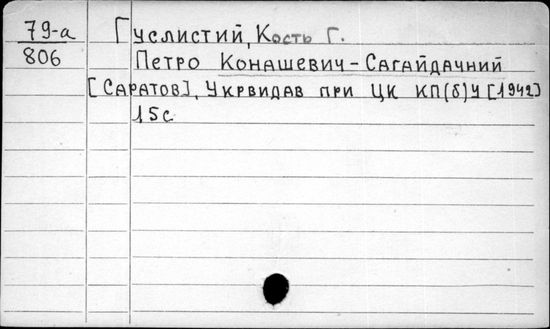 79-а Гуслистий, Кость Г.
806 Петро Конашевич-Сагайдачний
[Саратов], Укрвидав при ЦК КП(б)У [1942]
15с